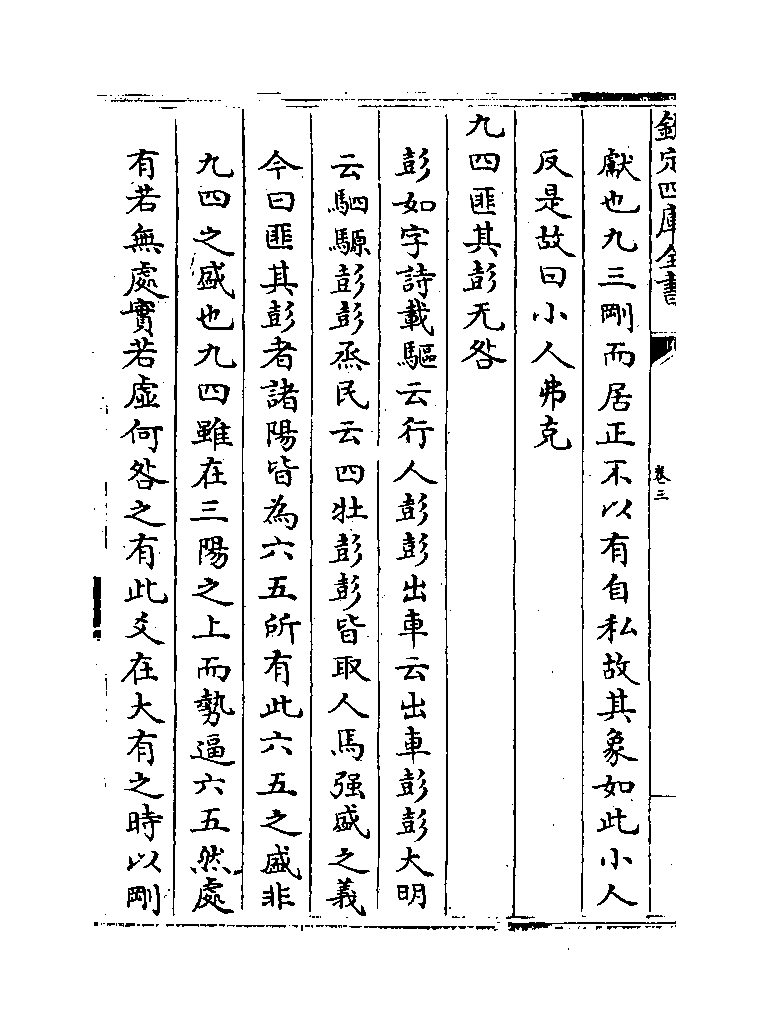 欽定四庫全書
卷三
獻也九三剛而居正不以有自私故其象如此小人
反是故曰小人弗克
九四匪其彭无咎
彭如字詩載驅云行人彭彭出車云出車彭彭大明
云駟騵彭彭烝民云四牡彭彭皆取人馬强盛之義
今曰匪其彭者諸陽皆為六五所有此六五之盛非
九四之盛也九四雖在三陽之上而勢逼六五然處
有若無處實若虛何咎之有此爻在大有之時以剛